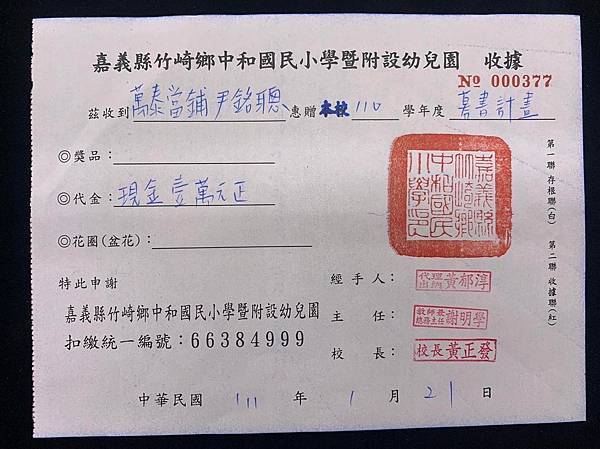 嘉義縣竹崎鄉中和國民小學暨附設幼兒園 收據
No 000377
茲收到 萬泰當鋪 尹銘聰 惠贈 本校 110 學年度 嘉書計畫
◎獎品：
◎代金：現金壹萬元正
◎花圈(盆花)：
嘉義縣竹崎鄉中和國民小學印
特此申謝
嘉義縣竹崎鄉中和國民小學暨附設幼兒園
扣繳統一編號：66384999
經手人： 代理出納 黃郁淳
主任： 教師兼總務主任 謝明學
校長： 校長 黃正發
中華民國 111 年 1 月 21 日
第一聯 存根聯(白) 第二聯 收據聯(紅)